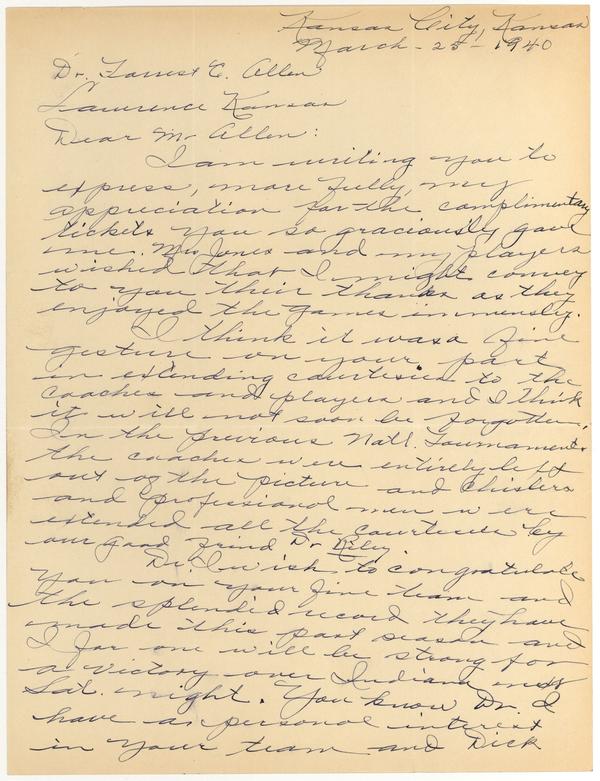 Kansas City, Kansas
March - 25 - 1940
Dr. Forrest C. Allen
Lawrence Kansas
Dear Mr Allen:
I am writing you to
express, more fully, my
appreciation for the complimentary
tickets you so graciously gave
me. Mrs Jones and my players
wished that I might convey
to you their thanks as they
enjoyed the games immensly.
I think it was a fine
gesture on your part
in extending courtesies to the
coaches and players and I think
it will not soon be forgotten.
In the previous Natl. Tournaments
the coaches were entirely left
out of the picture and chislers
and professional men were
extended all the courtesies by
our good frind Dr Riley.
Dr. I wish to congratulate
you on your fine team and
the splendid record they have
made this past season and
I for one will be strong for
a victory over Indiana next
Sat. night. You know Dr. I
have a personal interest
in your team and Dick